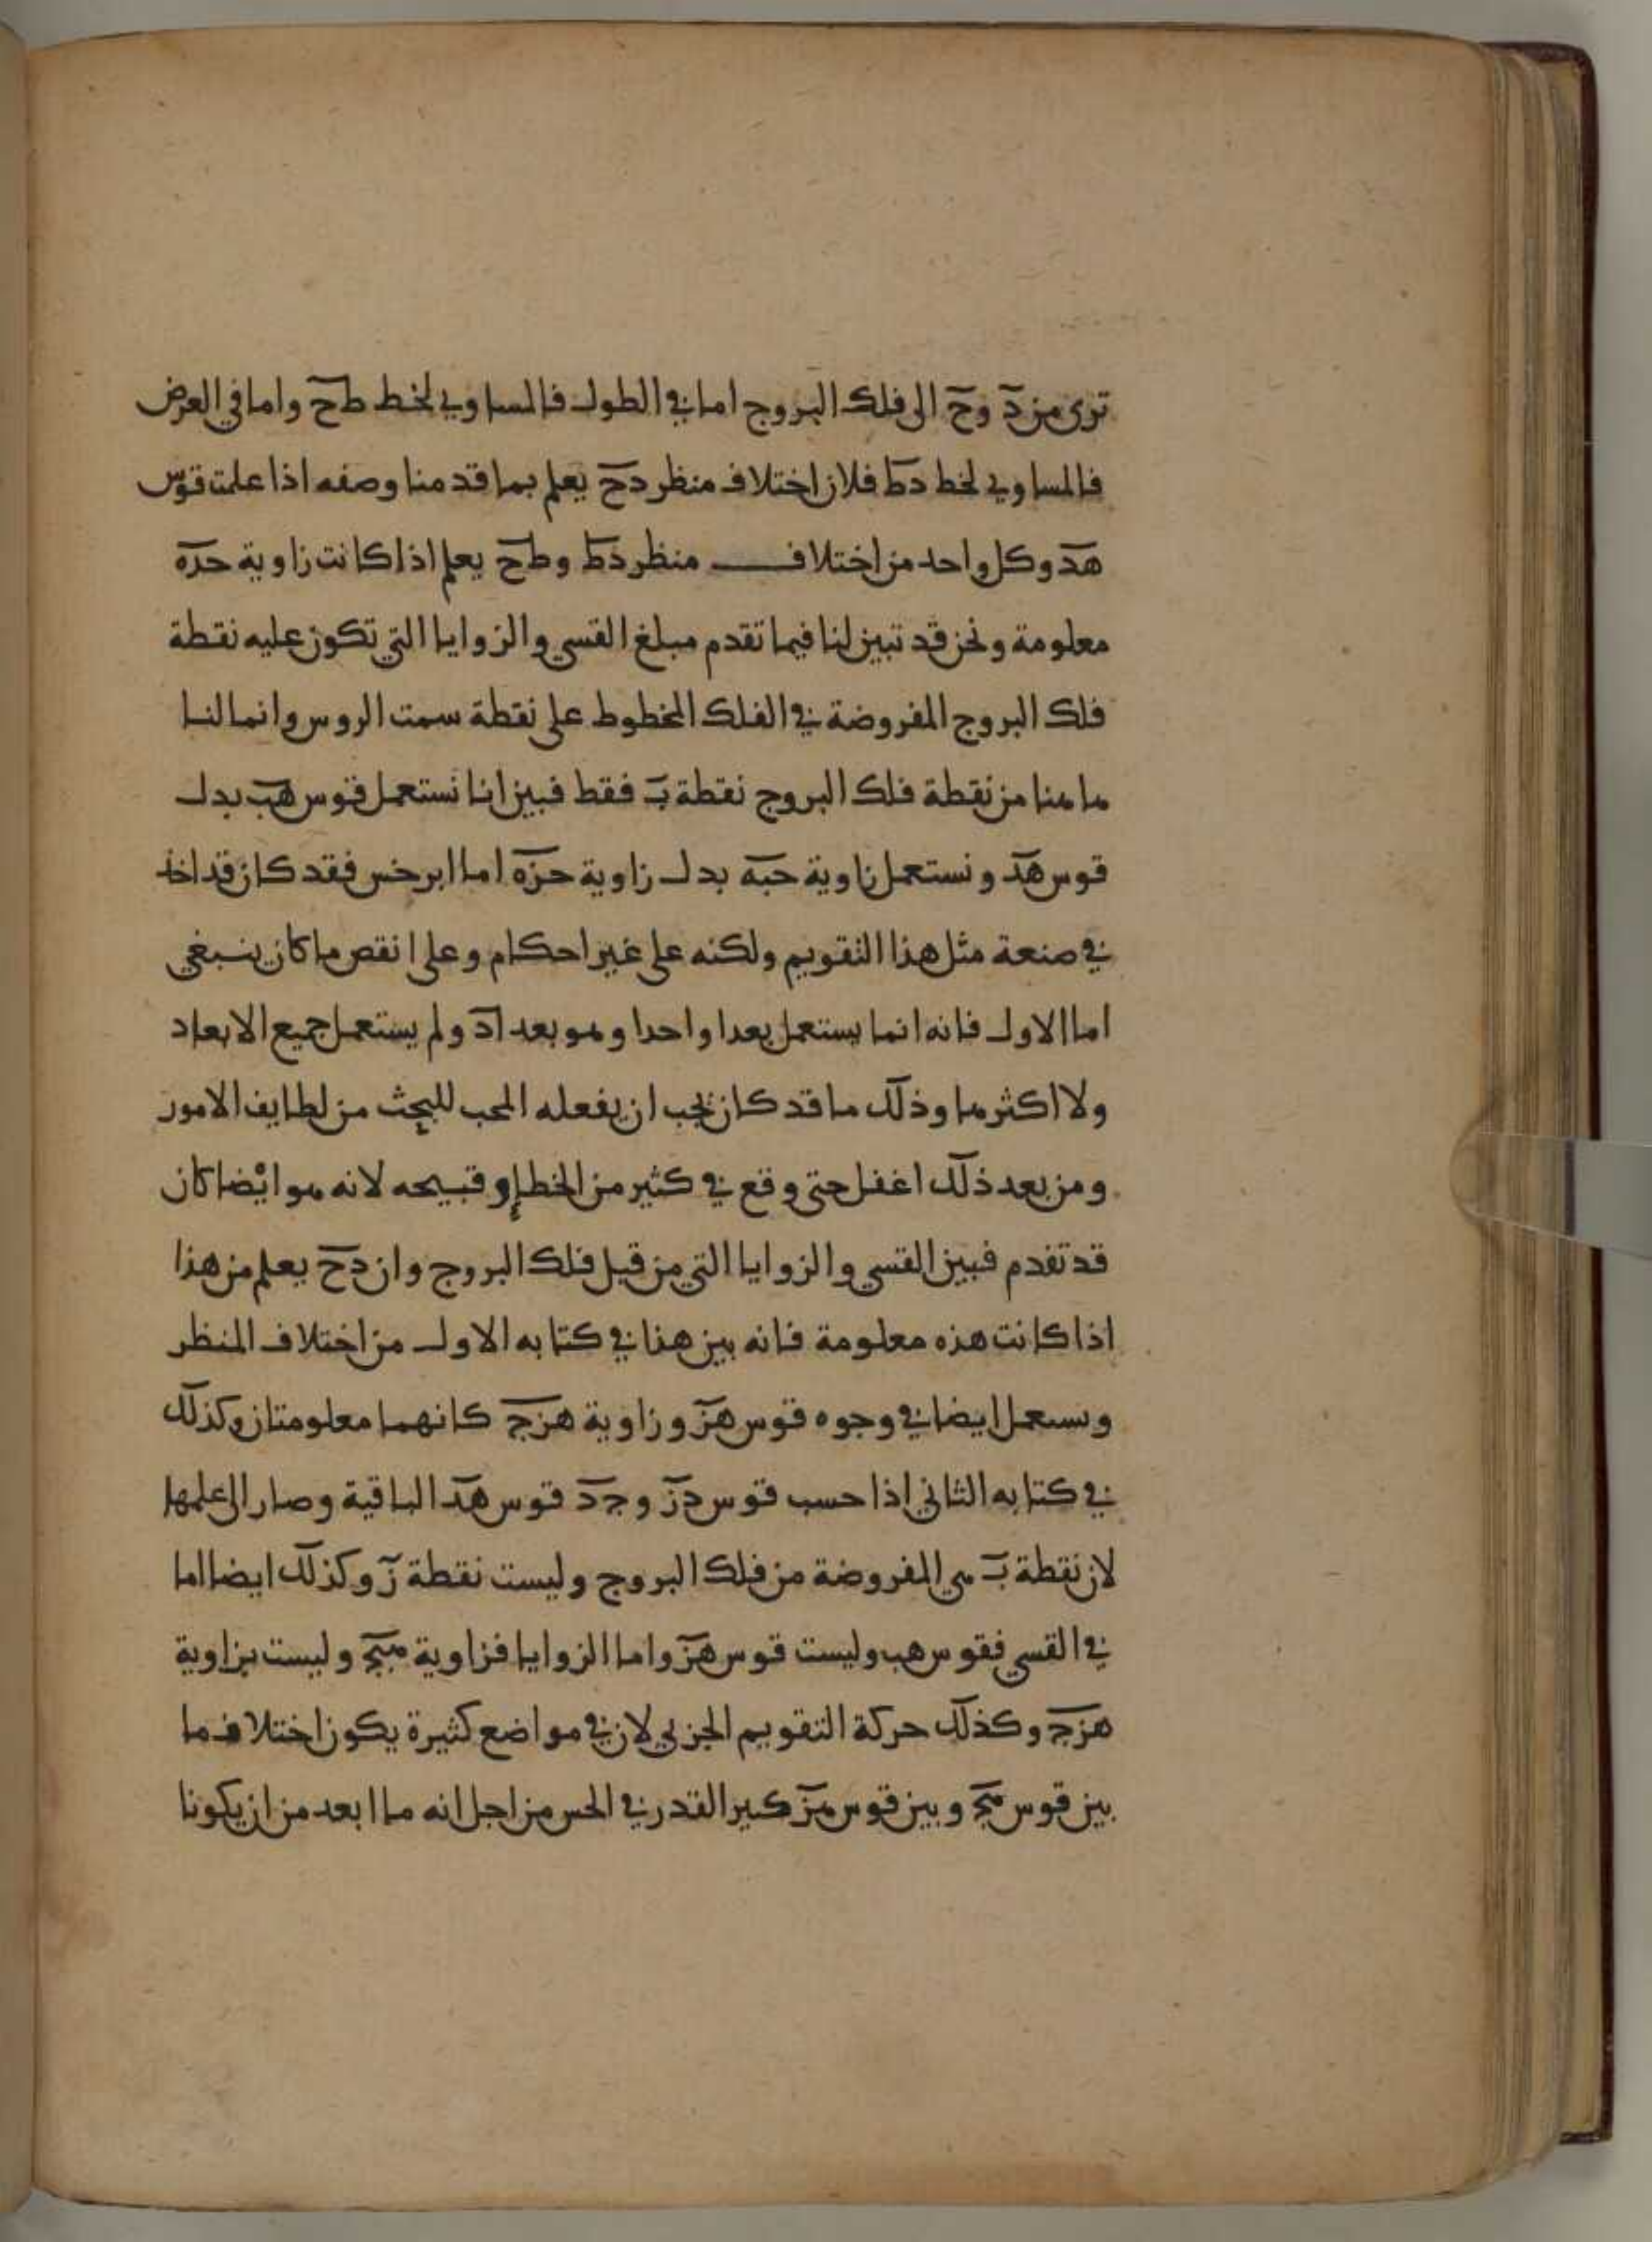 ترى من د وح الى فلك البروج اما في الطول فالمساوي لخط طح واما في العرض
فالمساوي لخط دط فلان اختلاف منظر دح يعلم بما قدمنا وصفه اذا علمت قوس
هد وكل واحد من اختلاف منظر دط وطح يعلم اذا كانت زاوية حده
معلومة ونحن قد تبين لنا فيما تقدم مبلغ القسي والزوايا التي تكون عليه نقطة
فلك البروج المفروضة في الفلك المخطوط على نقطة سمت الروس وانما لنا
هاهنا من نقطة فلك البروج نقطة ب فقط فبين انا نستعمل قوس هب بدل
قوس هد ونستعمل زاوية حبه بدل زاوية حزه اما ابرخس فقد كان قد اخذ
في صنعة مثل هذا التقويم ولكنه على غير احكام وعلى انقص ما كان ينبغي
اما الاول فانه انما يستعمل بعدا واحدا وهو بعد اد ولم يستعمل جميع الابعاد
ولا اكثرها وذلك ما قد كان يجب ان يفعله المحب للبحث من لطايف الامور
ومن بعد ذلك اغفل حتى وقع في كثير من الخطإ وقبيحه لانه هو ايضا كان
قد تقدم فبين القسي والزوايا التي من قبل فلك البروج وان دح يعلم من هذا
اذا كانت هذه معلومة فانه بين هذا في كتابه الاول من اختلاف المنظر
وسعمل ايضا في وجوه قوس هز وزاوية هزج كانهما معلومتان وكذلك
في كتابه الثاني اذا حسب قوس دز وجد قوس هد الباقية وصار الى علمها
لان نقطة ب هي المفروضة من فلك البروج وليست نقطة ز وكذلك ايضا اما
في القسي فقوس هب وليست قوس هز واما الزوايا فزاوية هبج وليست بزاوية
هزج وكذلك حركة التقويم الجزيي لان في مواضع كثيرة يكون اختلاف ما
بين قوس وبين قوس كبير القدر في الحس من اجل انه ما ابعد من ان يكونا